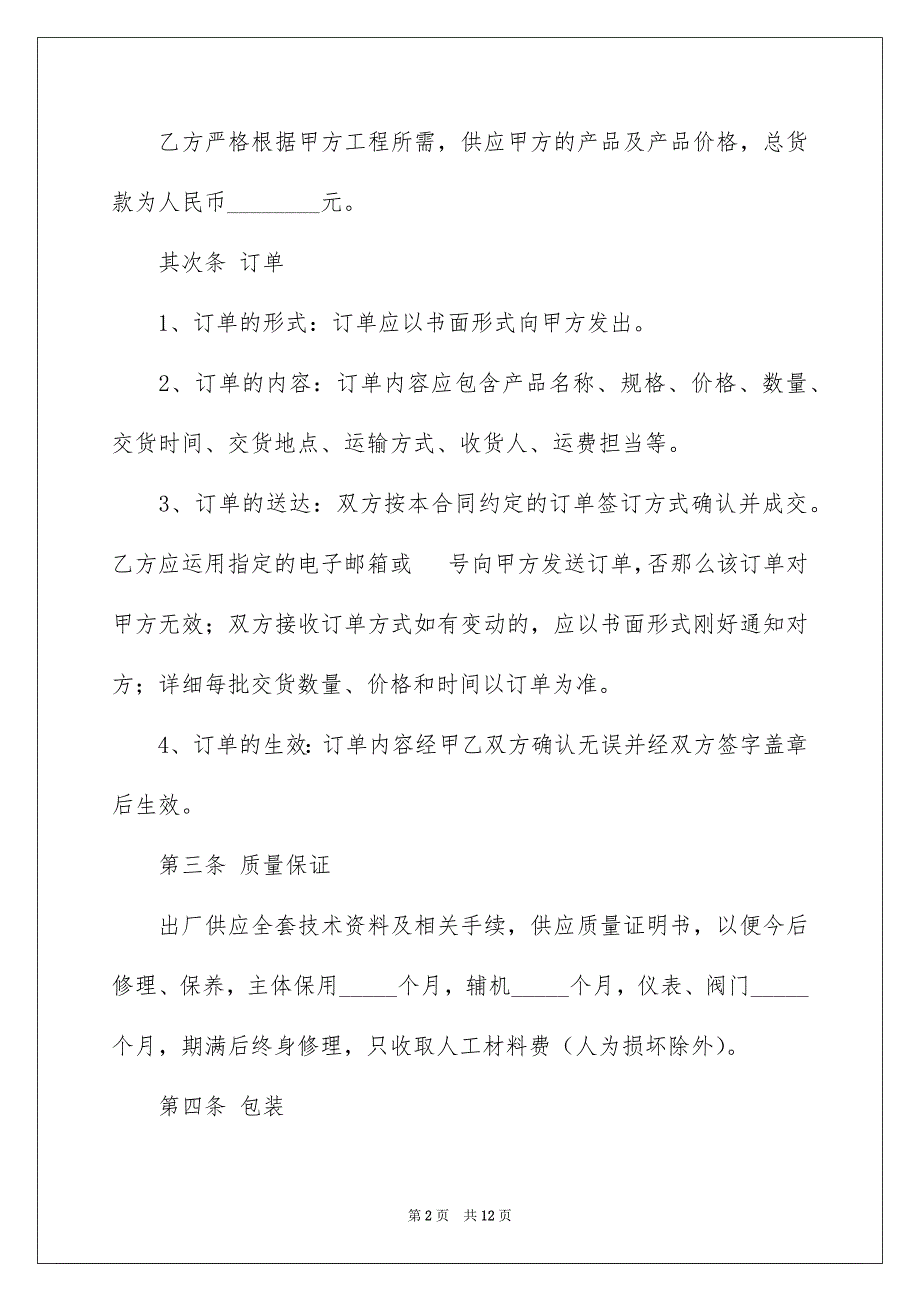 乙方严格根据甲方工程所需，供应甲方的产品及产品价格，总货
款为人民币________元。
其次条 订单
1、订单的形式：订单应以书面形式向甲方发出。
2、订单的内容：订单内容应包含产品名称、规格、价格、数量、
交货时间、交货地点、运输方式、收货人、运费担当等。
3、订单的送达：双方按本合同约定的订单签订方式确认并成交。
乙方应运用指定的电子邮箱或 号向甲方发送订单，否那么该订单对
甲方无效；双方接收订单方式如有变动的，应以书面形式刚好通知对
方；详细每批交货数量、价格和时间以订单为准。
4、订单的生效：订单内容经甲乙双方确认无误并经双方签字盖章
后生效。
第三条 质量保证
出厂供应全套技术资料及相关手续，供应质量证明书，以便今后
修理、保养，主体保用_____个月，辅机_____个月，仪表、阀门_____
个月，期满后终身修理，只收取人工材料费（人为损坏除外）。
第四条 包装
第 2 页 共 12 页